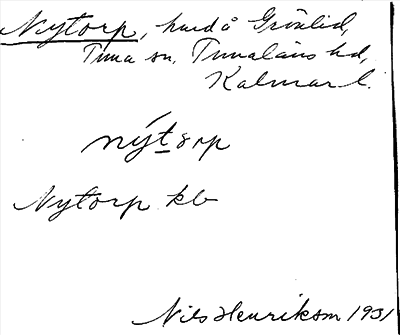 Nytorp, hmd å Grönlid,
Tuna sn, Tunaläns hd,
Kalmar l.
nýtorp
Nytorp kb
Nils Henrikson 1931